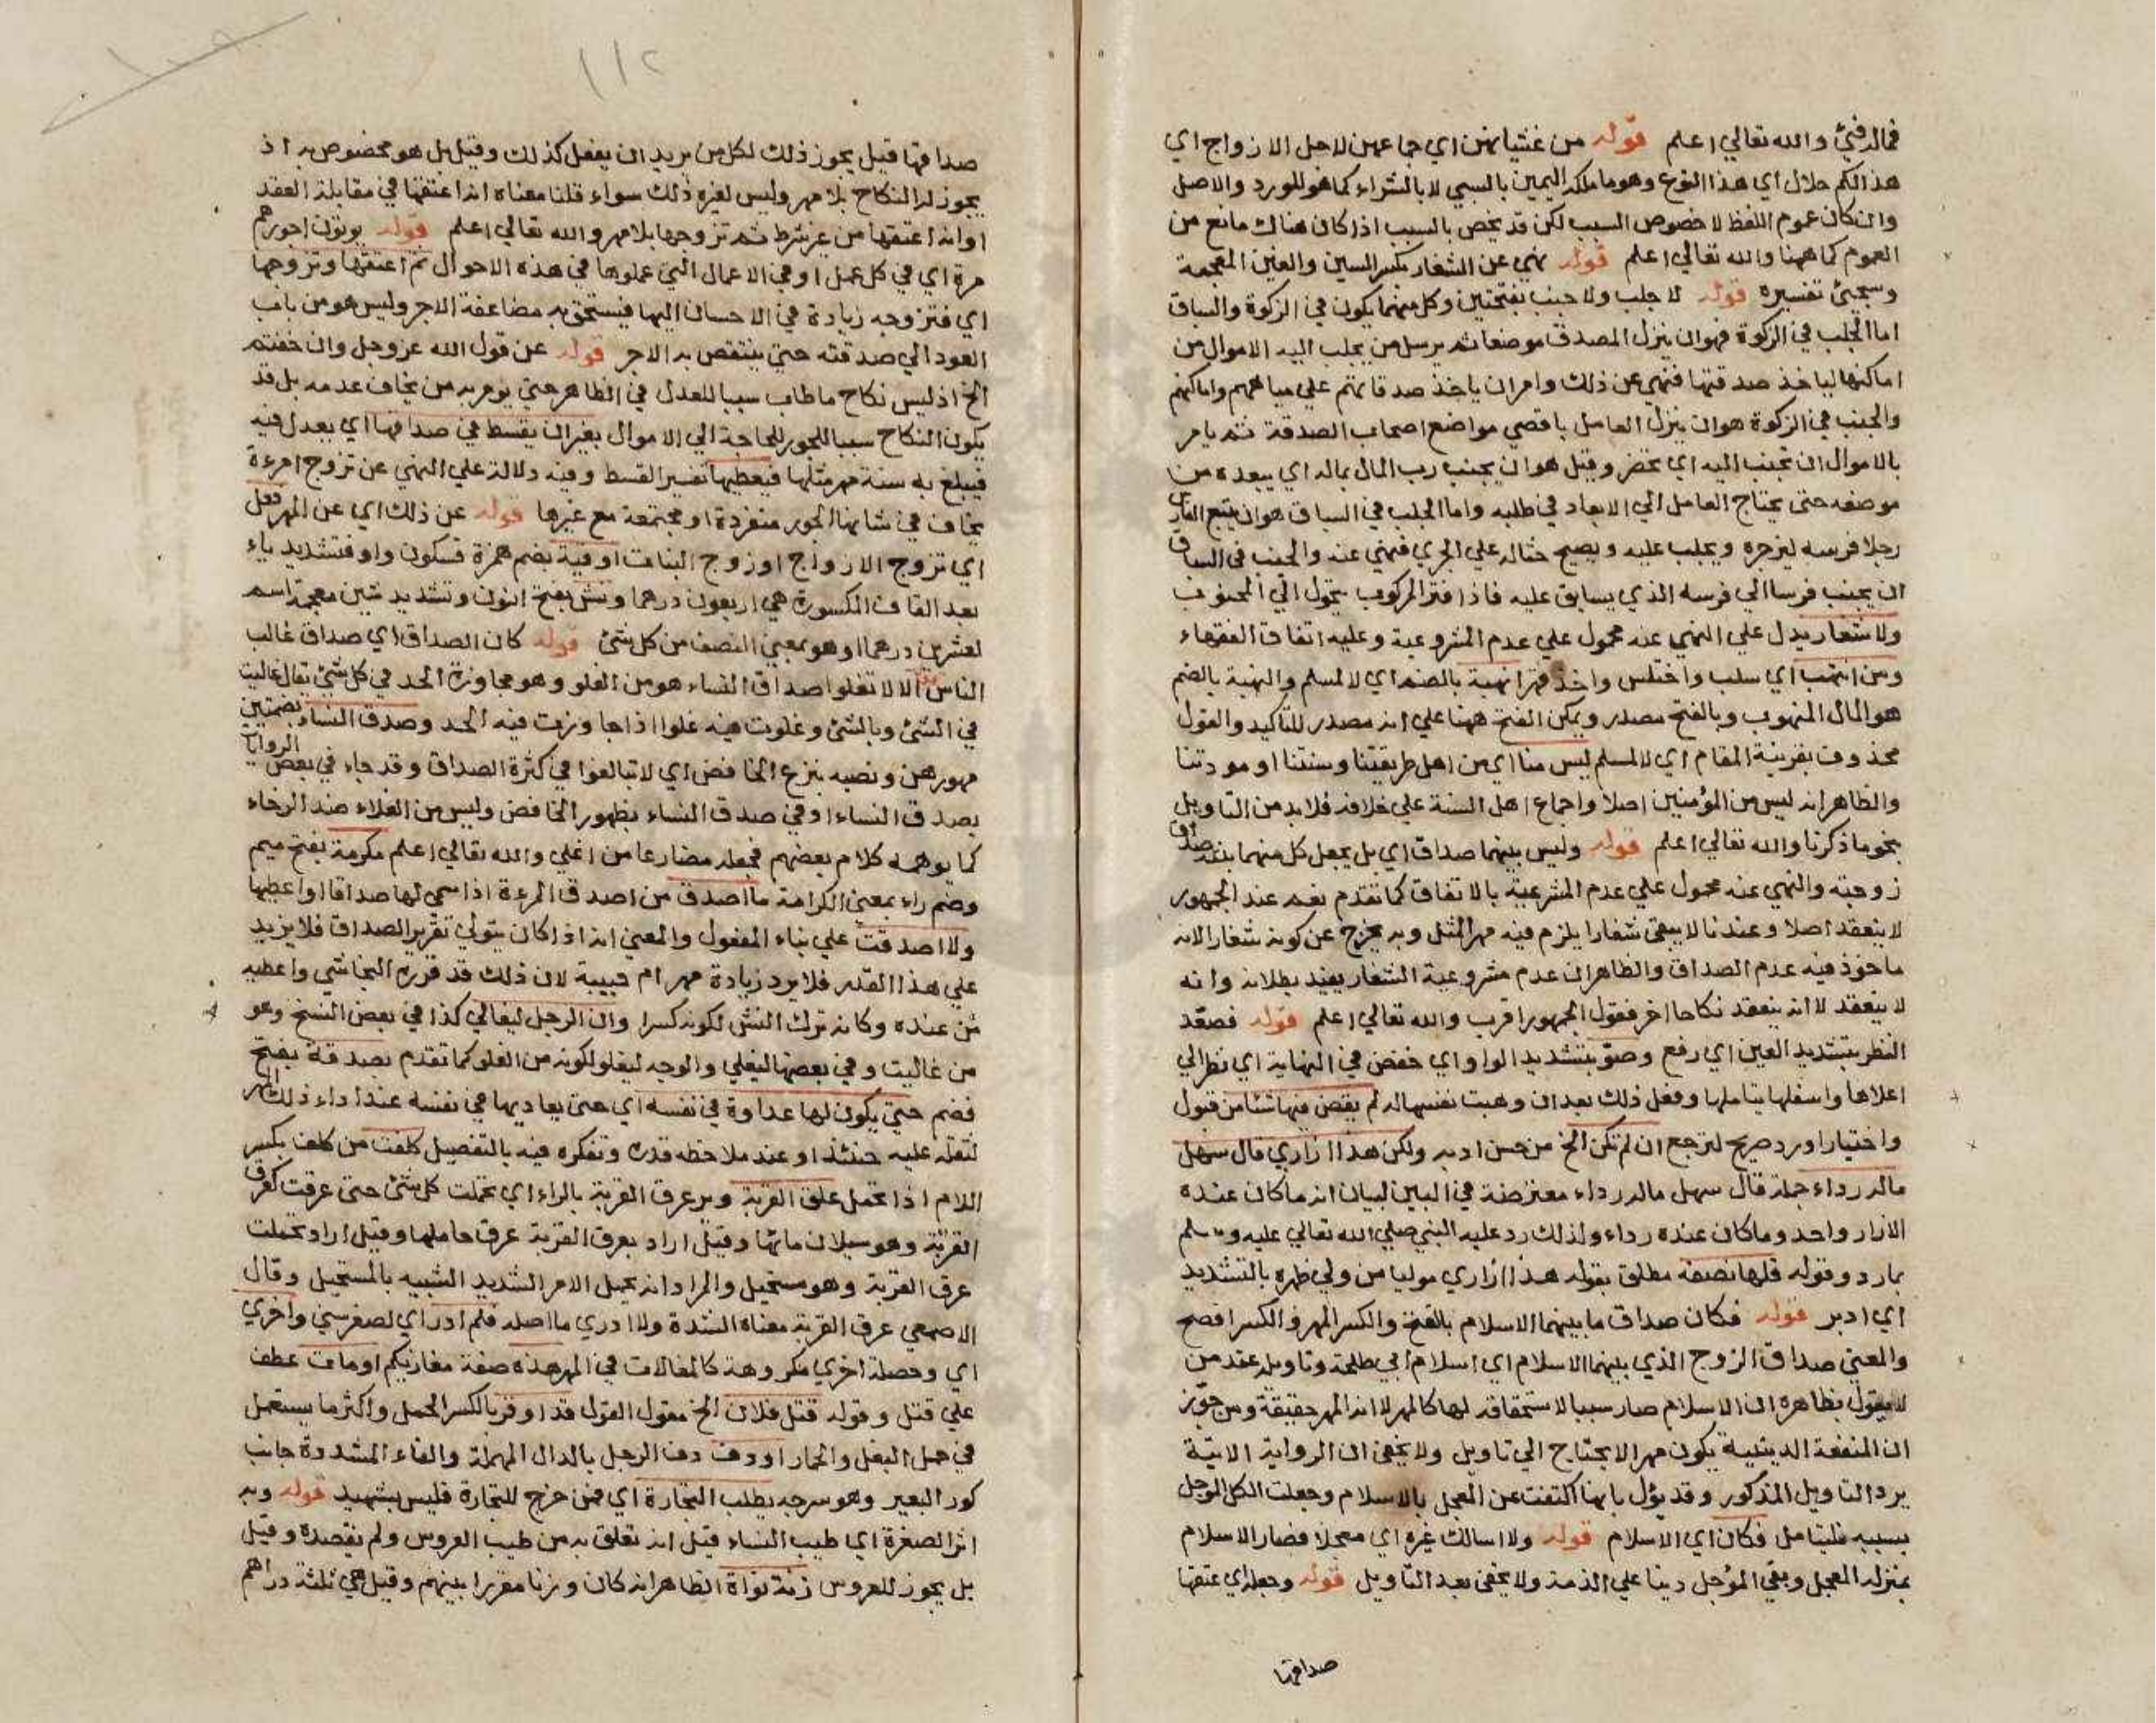 فمالد فيئ والله تعالي اعلم قوله من غشيانهن اي جماعهن لاجل الازواج اي
هذا لكم حلال اي هذا النوع وهو ما ملكه اليمين بالسبي لا بالشراء كما هو المورد والاصل
وان كان عموم اللفظ لا خصوص السبب لكن قد يخص بالسبب اذا كان هناك مانع من
العموم كما ههنا والله تعالي اعلم قوله نهي عن الشغار بكسر السين والغين المعجمة
وسيجئ تفسيره قوله لا جلب ولا جنب بفتحتين وكل منهما يكون في الزكوة والسباق
اما الجلب في الزكوة فهو ان ينزل المصدق موضعا ثم يرسل من يجلب اليه الاموال من
اماكنها لياخذ صدقتها فنهي عن ذلك وامر ان ياخذ صدقاتهم علي مياههم واماكنهم
والجنب في الزكوة هو ان ينزل العامل باقصي مواضع اصحاب الصدقة ثم يامر
بالاموال ان تجنب اليه اي تحضر وقيل هو ان يجنب رب المال بماله اي يبعده من
موضعه حتى يحتاج العامل الي الابعاد في طلبه واما الجلب في السباق هو ان يتبع الفارس
رجلا فرسه ليزجره ويجلب عليه ويصيح حثا له علي الجري فنهي عنه والجنب في السباق
ان يجنب فرسا الي فرسه الذي يسابق عليه فاذا فتر المركوب يتحول الي المجنوب
ولا شغار يدل علي النهي عنه محمول علي عدم المشروعية وعليه اتفاق الفقهاء
ومن انتهب اي سلب واختلس واخذ قهرا نهبة بالضم اي لا لمسلم والنهبة بالضم
هو المال المنهوب وبالفتح مصدر ويمكن الفتح ههنا علي انه مصدر للتاكيد والمفعول
محذوف بقرينة المقام اي لا لمسلم ليس منا اي من اهل طريقتنا وسنتنا او مودتنا
والظاهر انه ليس من المؤمنين اصلا واجماع اهل السنة علي خلافه فلا بد من التاويل
بنحو ما ذكرنا والله تعالي اعلم قوله وليس بينهما صداق اي بل يجعل كل منهما بنته صداق
زوجته والنهي عنه محمول علي عدم المشرعية بالاتفاق كما تقدم نعم عند الجمهور
لا ينعقد اصلا وعندنا لا يبقى شغارا يلزم فيه مهر المثل وبه يخرج عن كونه شغارا لانه
ماخوذ فيه عدم الصداق والظاهر ان عدم مشروعية الشغار يفيد بطلانه وانه
لا ينعقد لا انه ينعقد نكاحا اخر فقول الجمهور اقرب والله تعالي اعلم قوله فصعّد
النظر بتشديد العين اي رفع وصوّب بتشديد الواو اي خفض في النهاية اي نظر الي
اعلاها واسفلها يتاملها وفعل ذلك بعد ان وهبت نفسها له لم يقض فيها شئا من قبول
واختيار او رد صريح لترجع ان لم تكن الخ من حسن ادبه ولكن هذا ازاري قال سهل
ماله رداء جملة قال سهل ماله رداء معترضة في البين لبيان انه ما كان عنده
الازار واحد وما كان عنده رداء ولذلك رد عليه النبي صلي الله تعالي عليه وسلم
بما رد وقوله فلها نصفه مطلق بقوله هذا ازاري موليا من ولي ظهره بالتشديد
اي ادبر قوله فكان صداق ما بينهما الاسلام بالفتح والكسر المهر والكسر افصح
والمعنى صداق الزوج الذي بينهما الاسلام اي اسلام ابي طلحة وتاويله عند من
لا يقول بظاهره ان الاسلام صار سببا لاستحقاقه لها كالمهر لا انه المهر حقيقة ومن جوّز
ان المنفعة الدينية يكون مهرا لا يحتاج الي تاويل ولا يخفى ان الرواية الاتية
يرد التاويل المذكور وقد يؤول بانها اكتفت عن المعجل بالاسلام وجعلت الكل المؤجل
بسببه فليتامل فكان اي الاسلام قوله ولا اسالك غيره اي معجلا فصار الاسلام
بمنزلة المعجل وبقي المؤجل دينا علي الذمة ولا يخفى بعد التاويل قوله وجعله اي عتقها
صداقها
١١٢
صداقها قيل يجوز ذلك لكل من يريد ان يفعل كذلك وقيل بل هو مخصوص به اذ
يجوز له النكاح بلا مهر وليس لغيره ذلك سواء قلنا معناه انه اعتقها في مقابلة العقد
او انه اعتقها من غير شرط ثم تزوجها بلا مهر والله تعالي اعلم قوله يوتون اجورهم
مرة اي في كل عمل او في الاعمال التي عملوها في هذه الاحوال ثم اعتقها وتزوجها
اي فتزوجه زيادة في الاحسان اليها فيستحق به مضاعفة الاجر وليس هو من باب
العود الي صدقته حتي ينتقص به الاجر قوله عن قول الله عز وجل وان خفتم
الخ اذ ليس نكاح ما طاب سببا للعدل في الظاهر حتي يومر به من يخاف عدمه بل قد
يكون النكاح سببا للجور للحاجة الي الاموال بغير ان يقسط في صداقها اي يعدل فيه
فيبلغ به سنة مهر مثلها فيعطيها تفسير القسط وفيه دلالة علي النهي عن تزوج امرءة
يخاف في شانها الجور منفردة او مجتمعة مع غيرها قوله عن ذلك اي عن المهر فعل
اي تزوج الازواج او زوج البنات اوقية بضم همزة فسكون واو فتشديد ياء
بعد القاف المكسورة هي اربعون درهما ونش بفتح النون وتشديد شين معجمة اسم
لعشرين درهما او هو بمعني النصف من كل شئ قوله كان الصداق اي صداق غالب
الناس الا لا تغلوا صداق النساء هو من الغلو وهو مجاوزة الحد في كل شئ يقال غاليت
في الشئ وبالشئ وغلوت فيه غلوا اذا جاوزت فيه الحد وصدق النساء بضمتين
مهورهن ونصبه بنزع الخافض اي لا تبالغوا في كثرة الصداق وقد جاء في بعض الروايات
بصدق النساء او في صدق النساء بظهور الخافض وليس من الغلاء ضد الرخاء
كما يوهمه كلام بعضهم فجعله مضارعا من اغلي والله تعالي اعلم مكرمة بفتح ميم
وضم راء بمعنى الكرامة ما اصدق من اصدق المرءة اذا سمي لها صداقا او اعطيها
ولا اصدقت علي بناء المفعول والمعني انه اذا كان يتولي تقرير الصداق فلا يزيد
علي هذا القدر فلا يرد زيادة مهر ام حبيبة لان ذلك قد قرره النجاشي واعطيه
من عنده وكانه ترك النش لكونه كسرا وان الرجل ليغالي كذا في بعض النسخ وهو
من غاليت وفي بعضها ليغلي والوجه ليغلو لكونه من الغلو كما تقدم بصدقة بفتح
فضم حتي يكون لها عداوة في نفسه اي حتى يعاديها في نفسه عند اداء ذلك المهر
لثقله عليه حينئذ او عند ملاحظة قدره وتفكره فيه بالتفصيل كلفت من كلف بكسر
اللام اذا تحمل علق القربة ويروي عرق القربة بالراء اي تحملت كل شئ حتى عرقت كعرق
القربة وهو سيلان مائها وقيل اراد بعرق القربة عرق حاملها وقيل اراد تحملت
عرق القربة وهو مستحيل والمراد انه تحمل الامر الشديد الشبيه بالمستحيل وقال
الاصمعي عرق القربة معناه الشدة ولا ادري ما اصله فلم ادر اي لصغر سني واخري
اي وخصلة اخري مكروهة كالمغالات في المهر هذه صفة مغازيكم او مات عطف
علي قتل وقوله قتل فلان الخ مقول القول قد اوقر بالكسر الحمل واكثر ما يستعمل
في حمل البغل والحمار او دف دف الرحل بالدال المهملة والفاء المشددة جانب
كور البعير وهو سرجه يطلب التجارة اي فمن خرج للتجارة فليس بشهيد قوله وبه
اثر الصفرة اي طيب النساء قيل انه تعلق به من طيب العروس ولم يقصده وقيل
بل يجوز للعروس زنة نواة الظاهر انه كان وزنا مقررا بينهم وقيل هي ثلثة دراهم